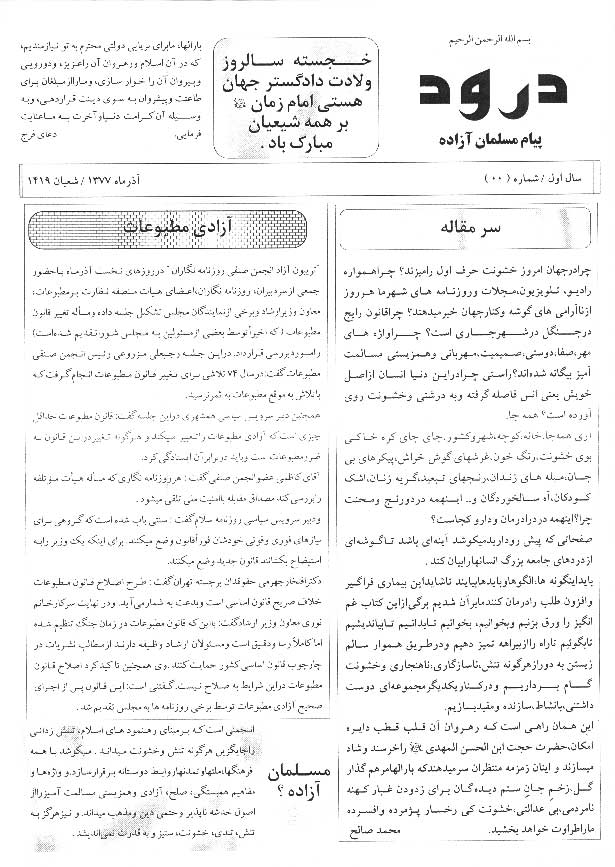 بسم الله الرحمن الرحیم
درود
پیام مسلمان آزاده
خجسته سالروز
ولادت دادگستر جهان
هستی امام زمان
بر همه شیعیان
مبارک باد.
بارالها، ما برای برپایی دولتی محترم به تو نیازمندیم،
که در آن اسلام و رهروان آن را عزیز، و دورویی
و پیروان آن را خوار سازی، و ما را از مبلغان برای
طاعتت و پیشروان به سوی دینت قرار دهی، و به
وسیله آن کرامت دنیا و آخرت به ما عنایت
فرمایی. دعای فرج
سال اول / شماره (۰۰)
آذرماه ۱۳۷۷ / شعبان ۱۴۱۹
سر مقاله
چرا در جهان امروز خشونت حرف اول را میزند؟ چرا همواره
رادیو، تلویزیون، مجلات و روزنامه های شهر ما هر روز
از ناآرامی های گوشه و کنار جهان خبر میدهند؟ چرا قانون رایج
در جنگل در شهر جاری است؟ چرا واژه های
مهر، صفا، دوستی، صمیمیت، مهربانی و همزیستی مسالمت
آمیز بیگانه شده اند؟ راستی چرا در این دنیا انسان از اصل
خویش یعنی انس فاصله گرفته و به درشتی و خشونت روی
آورده است؟ همه جا.
آری همه جا، خانه، کوچه، شهر و کشور، جای جای کره خاکی
بوی خشونت، رنگ خون، غرشهای گوش خراش، پیکرهای بی
جان، میله های زندان، رنجهای تبعید، گریه زنان، اشک
کودکان، آه سالخوردگان و.. اینهمه درد و رنج و محنت
چرا؟ اینهمه درد را درمان و دارو کجاست؟
صفحاتی که پیش رو دارید میکوشد آینه ای باشد تا گوشه ای
از دردهای جامعه بزرگ انسانها را بیان کند.
باید اینگونه ها، الگوها و بایدها بیایند تا شاید این بیماری فراگیر
و افزون طلب را درمان کنند ما بر آن شدیم برگی از این کتاب غم
انگیز را ورق بزنیم و بخوانیم، بخوانیم تا بدانیم تا بیاندیشیم
تا بگوئیم تا راه را از بیراهه تمیز دهیم و در طریق هموار سالم
زیستن به دور از هرگونه تنش، ناسازگاری، ناهنجاری و خشونت
گام برداریم و در کنار یکدیگر مجموعه ای دوست
داشتنی، با نشاط، سازنده و مفید بسازیم.
این همان راهی است که رهروان آن قلب قطب دایره
امکان، حضرت حجت ابن الحسن المهدی را خرسند و شاد
میسازند و اینان زمزمه منتظران سر میدهند که بارالها مرهم گذار
گل، زخم جان ستم دیدگان برای زدودن غبار کهنه
نامردمی، بی عدالتی، خشونت کی رخسار پژمرده و افسرده
ما را طراوت خواهد بخشید. محمد صالح
آزادی مطبوعات
"تریبون آزاد انجمن صنفی روزنامه نگاران" در روزهای نخست آذرماه با حضور
جمعی از سردبیران، روزنامه نگاران، اعضای هیأت منصفه نظارت بر مطبوعات،
معاون وزیر ارشاد و برخی از نمایندگان مجلس تشکیل جلسه داده و مسأله تغییر قانون
مطبوعات (که اخیراً توسط بعضی از مسئولین به مجلس شورا تقدیم شده است)
را مورد بررسی قرار داد. در این جلسه رجبعلی مزروعی رئیس انجمن صنفی
مطبوعات گفت: در سال ۷۴ تلاشی برای تغییر قانون مطبوعات انجام گرفت که
با تلاش به موقع مطبوعات به ثمر نرسید.
همچنین دبیر سرویس سیاسی همشهری در این جلسه گفت: قانون مطبوعات حداقل
چیزی است که آزادی مطبوعات را تعبیر میکند و هرگونه تغییر در این قانون به
ضرر مطبوعات است و باید در برابر آن ایستادگی کرد.
آقای کاظمی عضو انجمن صنفی گفت: هر روزنامه نگاری که مسأله هیأت مؤتلفه
را بررسی کند، مصداق مقابله با امنیت ملی تلقی میشود.
و دبیر سرویس سیاسی روزنامه سلام گفت: سنتی باب شده است که گروهی برای
نیازهای فوری و فوتی خودشان فوراً قانون وضع میکنند. برای اینکه یک وزیر را به
استیضاح بکشانند قانون جدید وضع میکنند.
دکتر افتخار جهرمی حقوقدان برجسته تهران گفت: طرح اصلاح قانون مطبوعات
خلاف صریح قانون اساسی است و بدعت به شمار می آید. و در نهایت سرکار خانم
نوری معاون وزیر ارشاد گفت: با این که قانون مطبوعات در زمان جنگ تنظیم شده
اما کاملاً رسا و دقیق است و مسئولان ارشاد وظیفه دارند از مطالب نشریات در
چارچوب قانون اساسی کشور حمایت کنند. وی همچنین تاکید کرد اصلاح قانون
مطبوعات در این شرایط به صلاح نیست. گفتنی است: این قانون پس از اجرای
صحیح آزادی مطبوعات توسط برخی روزنامه ها به مجلس تقدیم شد.
مسلمان
آزاده ؟
انجمنی است که بر مبنای رهنمودهای اسلام، تنش زدائی
را جایگزین هرگونه تنش و خشونت میداند. میکوشد با همه
فرهنگها، ملتها و تمدنها روابط دوستانه برقرار سازد و واژه ها و
مفاهیم همبستگی، صلح، آزادی و همزیستی مسالمت آمیز را از
اصول خدشه ناپذیر و حتمی دین و مذهب میداند و نیز هرگز به
تنش، تندی، خشونت، ستیز و به قدرت نمی اندیشد.